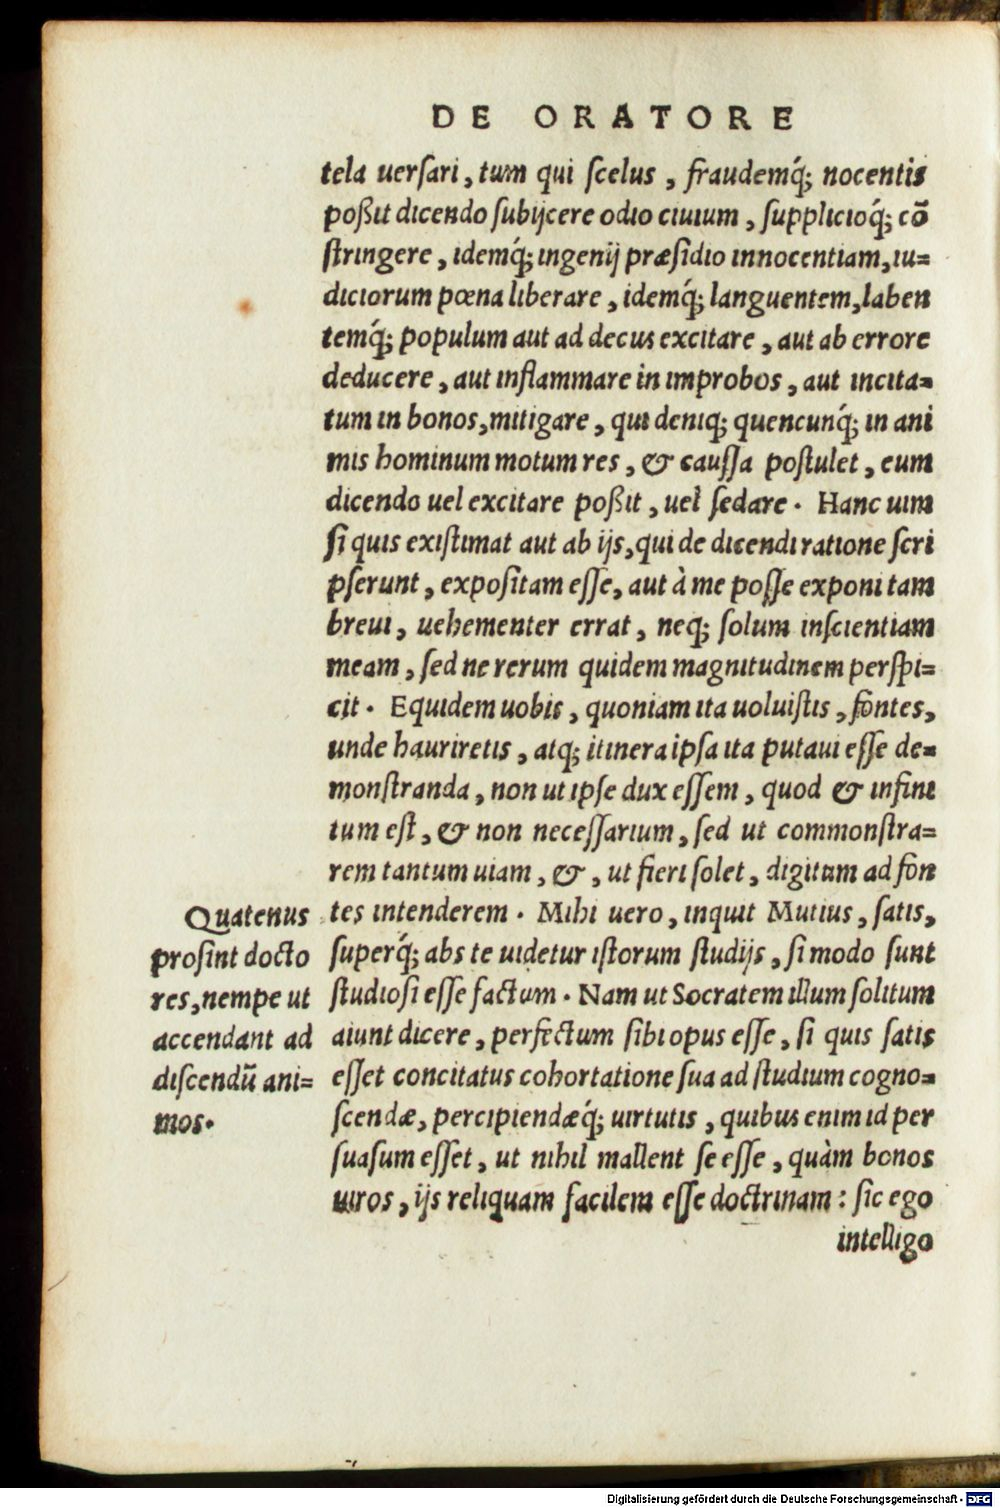 DE ORATORE
tela uerſari, tum qui ſcelus, fraudemq́; nocentis
poßit dicendo ſubijcere odio ciuium, ſupplicioq́; cō
ſtringere, idemq́; ingenij præſidio innocentiam, iu=
diciorum pœna liberare, idemq́; languentem, laben
temq́; populum aut ad decus excitare, aut ab errore
deducere, aut inflammare in improbos, aut incita=
tum in bonos, mitigare, qui deniq; quencunq́; in ani
mis hominum motum res, & cauſſa poſtulet, eum
dicendo uel excitare poßit, uel ſedare. Hanc uim
ſi quis exiſtimat aut ab ijs, qui de dicendi ratione ſcri
pſerunt, expoſitam eſſe, aut à me poſſe exponi tam
breui, uehementer errat, neq; ſolum inſcientiam
meam, ſed ne rerum quidem magnitudinem perſpi=
cit. Equidem uobis, quoniam ita uoluiſtis, fontes,
unde hauriretis, atq; itinera ipſa ita putaui eſſe de=
monſtranda, non ut ipſe dux eſſem, quod & infini
tum eſt, & non neceſſarium, ſed ut commonſtra=
rem tantum uiam, &, ut fieri ſolet, digitum ad fon
tes intenderem. Mihi uero, inquit Mutius, ſatis,
ſuperq́; abs te uidetur iſtorum ſtudijs, ſi modo ſunt
ſtudioſi eſſe factum. Nam ut Socratem illum ſolitum
aiunt dicere, perfectum ſibi opus eſſe, ſi quis ſatis
eſſet concitatus cohortatione ſua ad ſtudium cogno=
ſcendæ, percipiendæq́; uirtutis, quibus enim id per
ſuaſum eſſet, ut nihil mallent ſe eſſe, quàm bonos
uiros, ijs reliquam facilem eſſe doctrinam: ſic ego
intelligo
Quatenus
proſint docto
res, nempe ut
accendant ad
diſcendū ani=
mos.
Digitalisierung gefördert durch die Deutsche Forschungsgemeinschaft - DFG